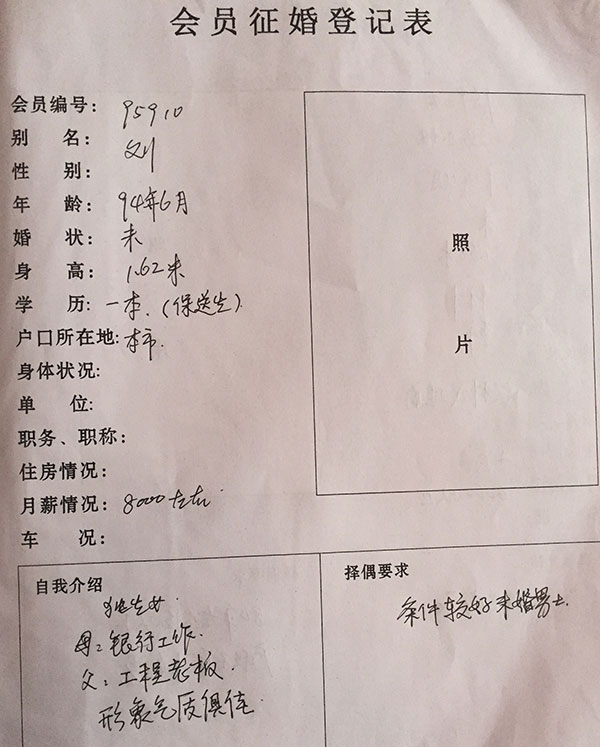 会员征婚登记表
会员编号: 95910
别 名: 刘
性 别:
年 龄: 94年6月
婚 状: 未
身 高: 1.62米
学 历: 一本.(保送生)
户口所在地: 本市.
身体状况:
单 位:
职务、职称:
住房情况:
月薪情况: 8000左右
车 况:
照
片
自我介绍
独生女.
母: 银行工作.
父: 工程老板.
形象气质俱佳
择偶要求
条件较好未婚男士.